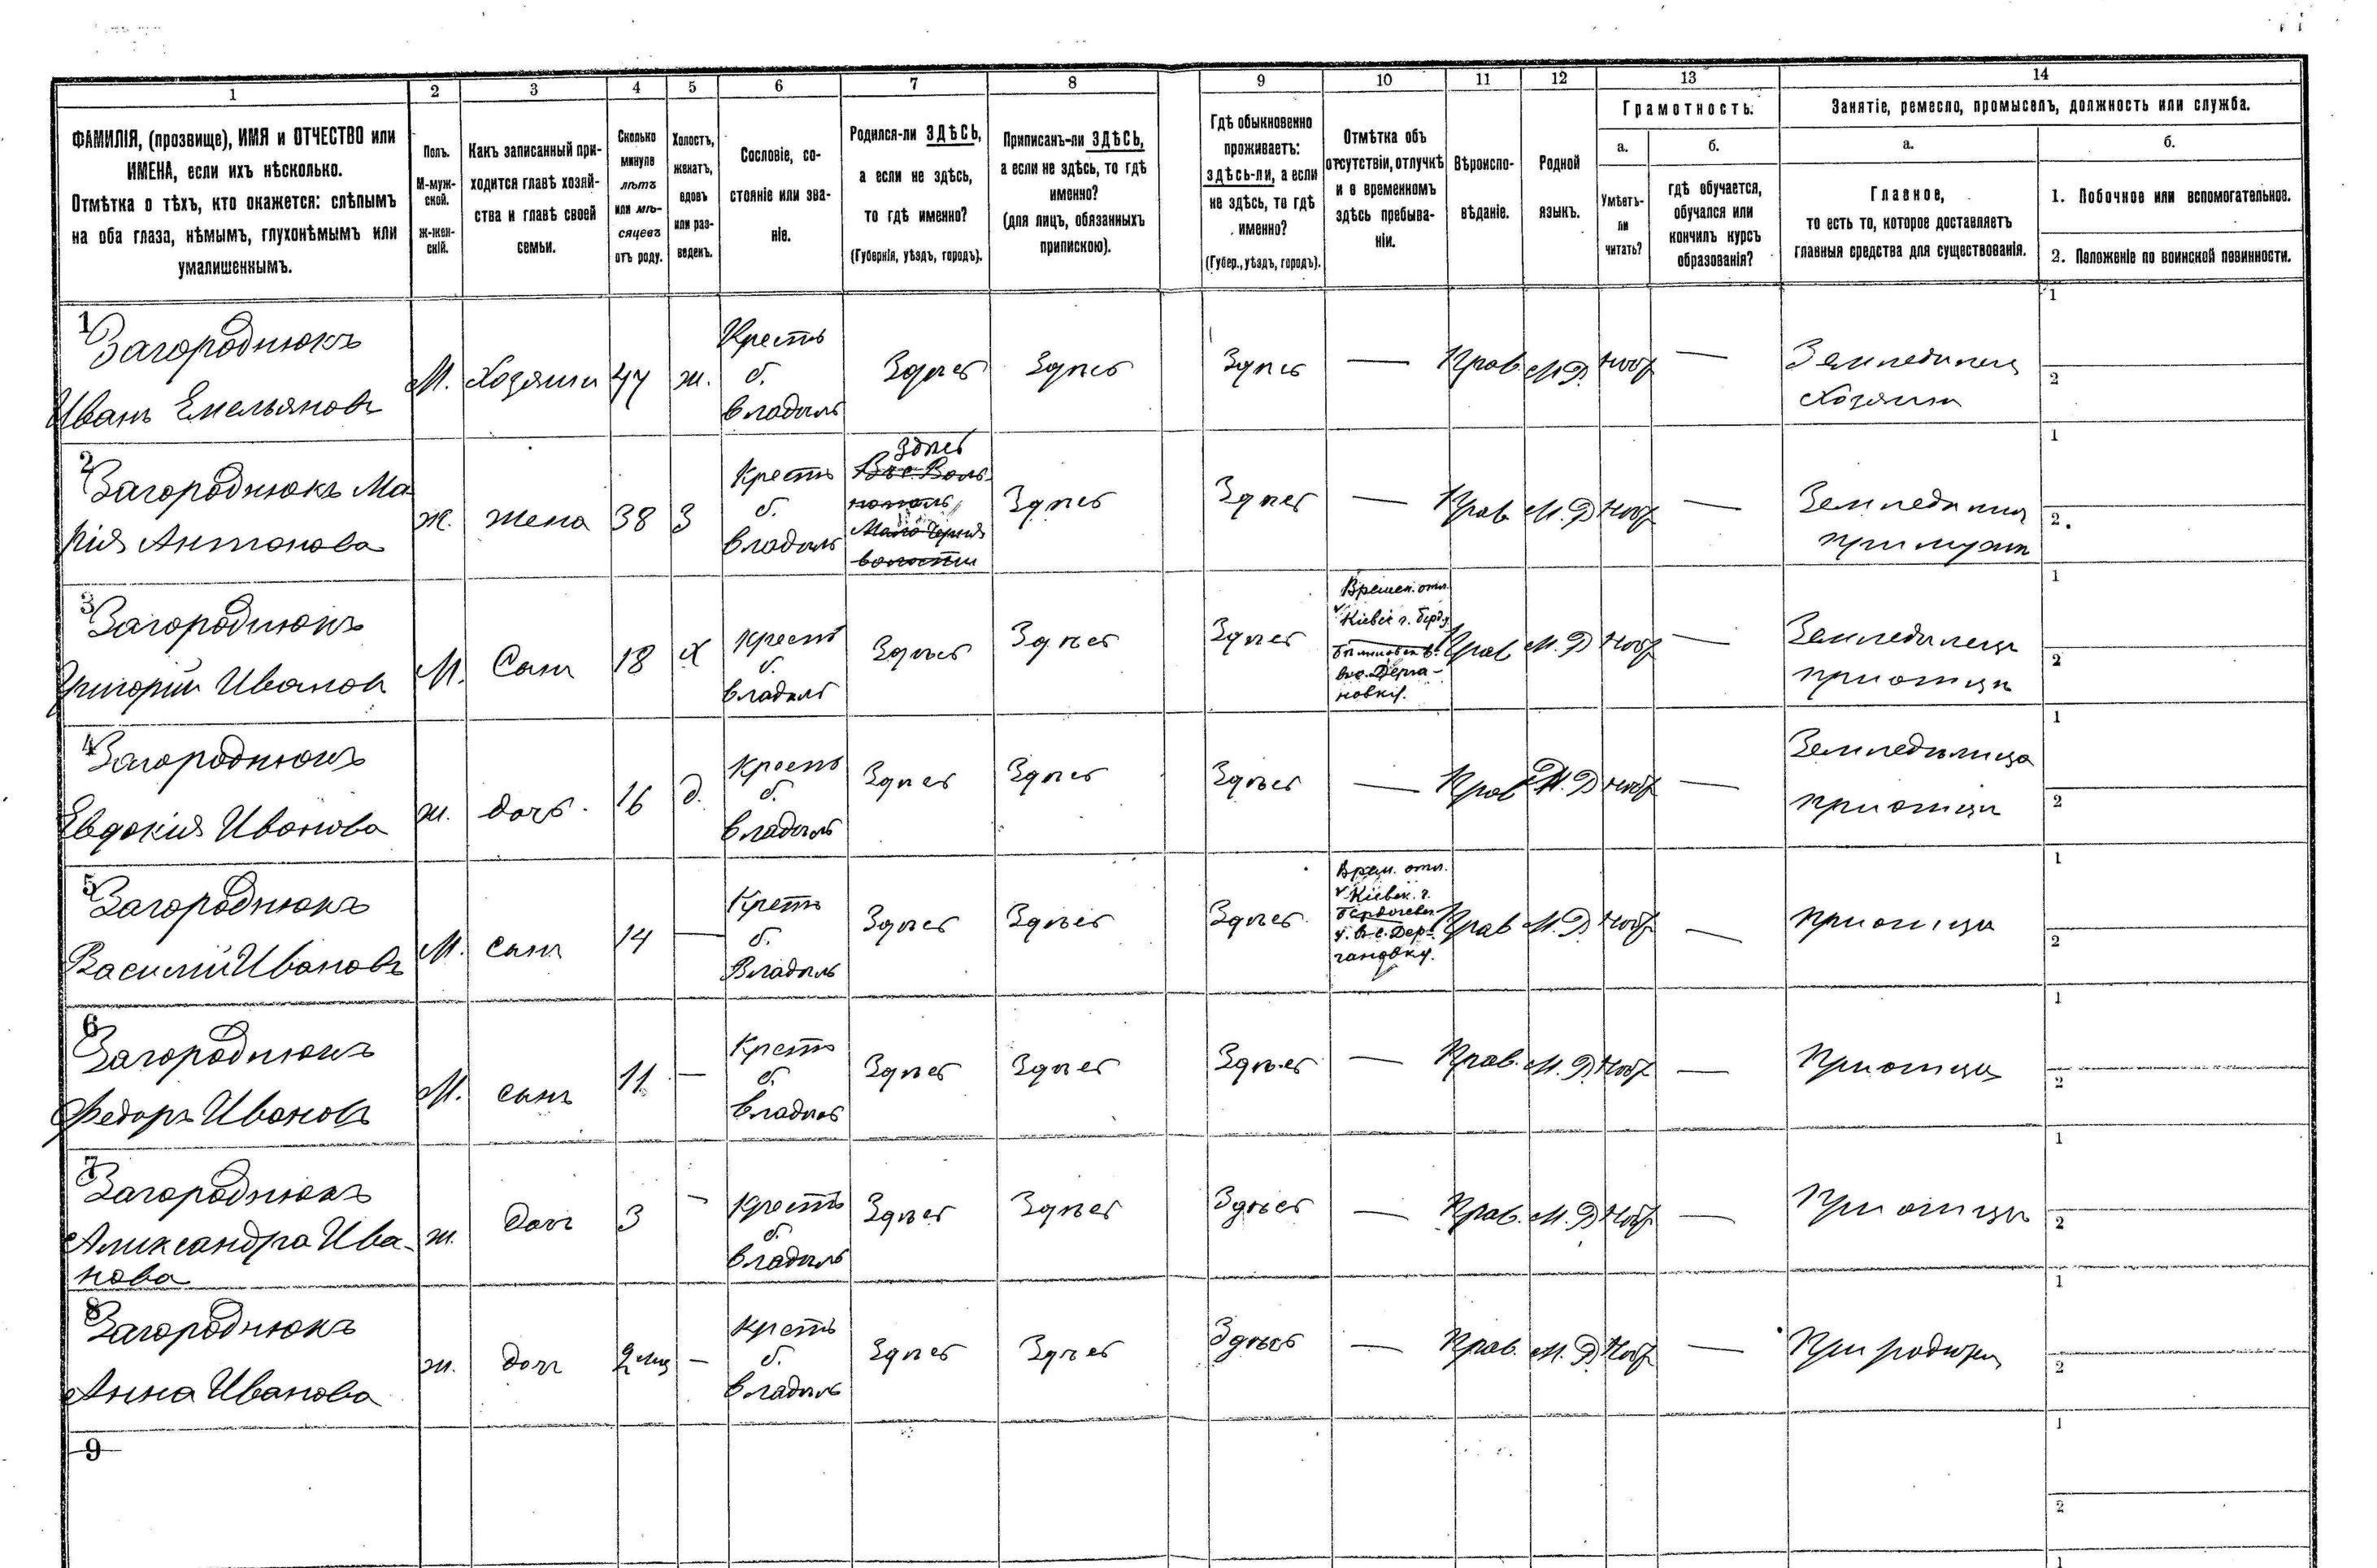 1 2 3 4 5 6 7 8 9 10 11 12 13 14
ФАМИЛІЯ, (прозвище), ИМЯ и ОТЧЕСТВО или
ИМЕНА, если ихъ нѣсколько.
Отмѣтка о тѣхъ, кто окажется: слѣпымъ
на оба глаза, нѣмымъ, глухонѣмымъ или
умалишеннымъ.
Полъ.
М-муж-
ской.
ж-жен-
скій.
Какъ записанный при-
ходится главѣ хозяй-
ства и главѣ своей
семьи.
Сколько
минуло
лѣтъ
или мѣ-
сяцевъ
отъ роду.
Холостъ,
женатъ,
вдовъ
или раз-
веденъ.
Сословіе, со-
стояніе или зва-
ніе.
Родился-ли ЗДѢСЬ,
а если не здѣсь,
то гдѣ именно?
(Губернія, уѣздъ, городъ).
Приписанъ-ли ЗДѢСЬ,
а если не здѣсь, то гдѣ
именно?
(для лицъ, обязанныхъ
припискою).
Гдѣ обыкновенно
проживаетъ:
здѣсь-ли, а если
не здѣсь, то гдѣ
именно?
(Губер., уѣздъ, городъ).
Отмѣтка объ
отсутствіи, отлучкѣ
и о временномъ
здѣсь пребыва-
ніи.
Вѣроиспо-
вѣданіе.
Родной
языкъ.
Грамотность.
а.
Умѣетъ-
ли
читать?
б.
гдѣ обучается,
обучался или
кончилъ курсъ
образованія?
Занятіе, ремесло, промыселъ, должность или служба.
а.
Главное,
то есть то, которое доставляетъ
главныя средства для существованія.
б.
1. Побочное или вспомогательное.
2. Положеніе по воинской повинности.
1
Загороднюкъ
Иванъ Емельяновъ
М. Хозяинъ 47 ж.
Кресть
б.
владѣль
Здѣсь Здѣсь Здѣсь — Прав. М.Р. —
Земледѣлецъ
Хозяинъ
1
2
2
Загороднюкъ Ма-
рія Антонова
ж. жена 38 З
Кресть
б.
владѣль
Здѣсь
волости
Здѣсь Здѣсь — Прав М.Р —
Земледѣлица
при мужѣ
1
2.
3
Загороднюкъ
Григорій Ивановъ
М. Сынъ 18 х
Кресть
б.
владѣль
Здѣсь Здѣсь Здѣсь
Времен. отл.
Кіевск. г. Берд.
во с. Дерга-
новку.
Прав М.Р —
Земледѣлецъ
при отцѣ
1
2
4
Загороднюкъ
Евдокія Иванова
ж. дочь. 16 д.
Кресть
б.
владѣль
Здѣсь Здѣсь Здѣсь — Прав М.Р —
Земледѣлица
при отцѣ
1
2
5
Загороднюкъ
Василій Ивановъ
М. сынъ 14 —
Кресть
б.
Владѣль
Здѣсь Здѣсь Здѣсь
Врем. отл.
Кіевск. г.
Бердичевск.
у. въ с. Дер-
гановку.
Прав М.Р —
при отцѣ
1
2
6
Загороднюкъ
Федоръ Ивановъ
М. сынъ 11. —
Кресть
б.
владѣль
Здѣсь Здѣсь Здѣсь — Прав. М.Р —
При отцѣ
1
2
7
Загороднюкъ
Александра Ива-
нова
ж. Дочь 3 —
Кресть
б.
владѣль
Здѣсь Здѣсь Здѣсь — Прав. М.Р —
При отцѣ
1
2
8
Загороднюкъ
Анна Иванова
ж. дочь 2 мѣц —
Кресть
б.
владѣль
Здѣсь Здѣсь Здѣсь — Прав. М.Р —
При родител
1
2
9
1
2
1